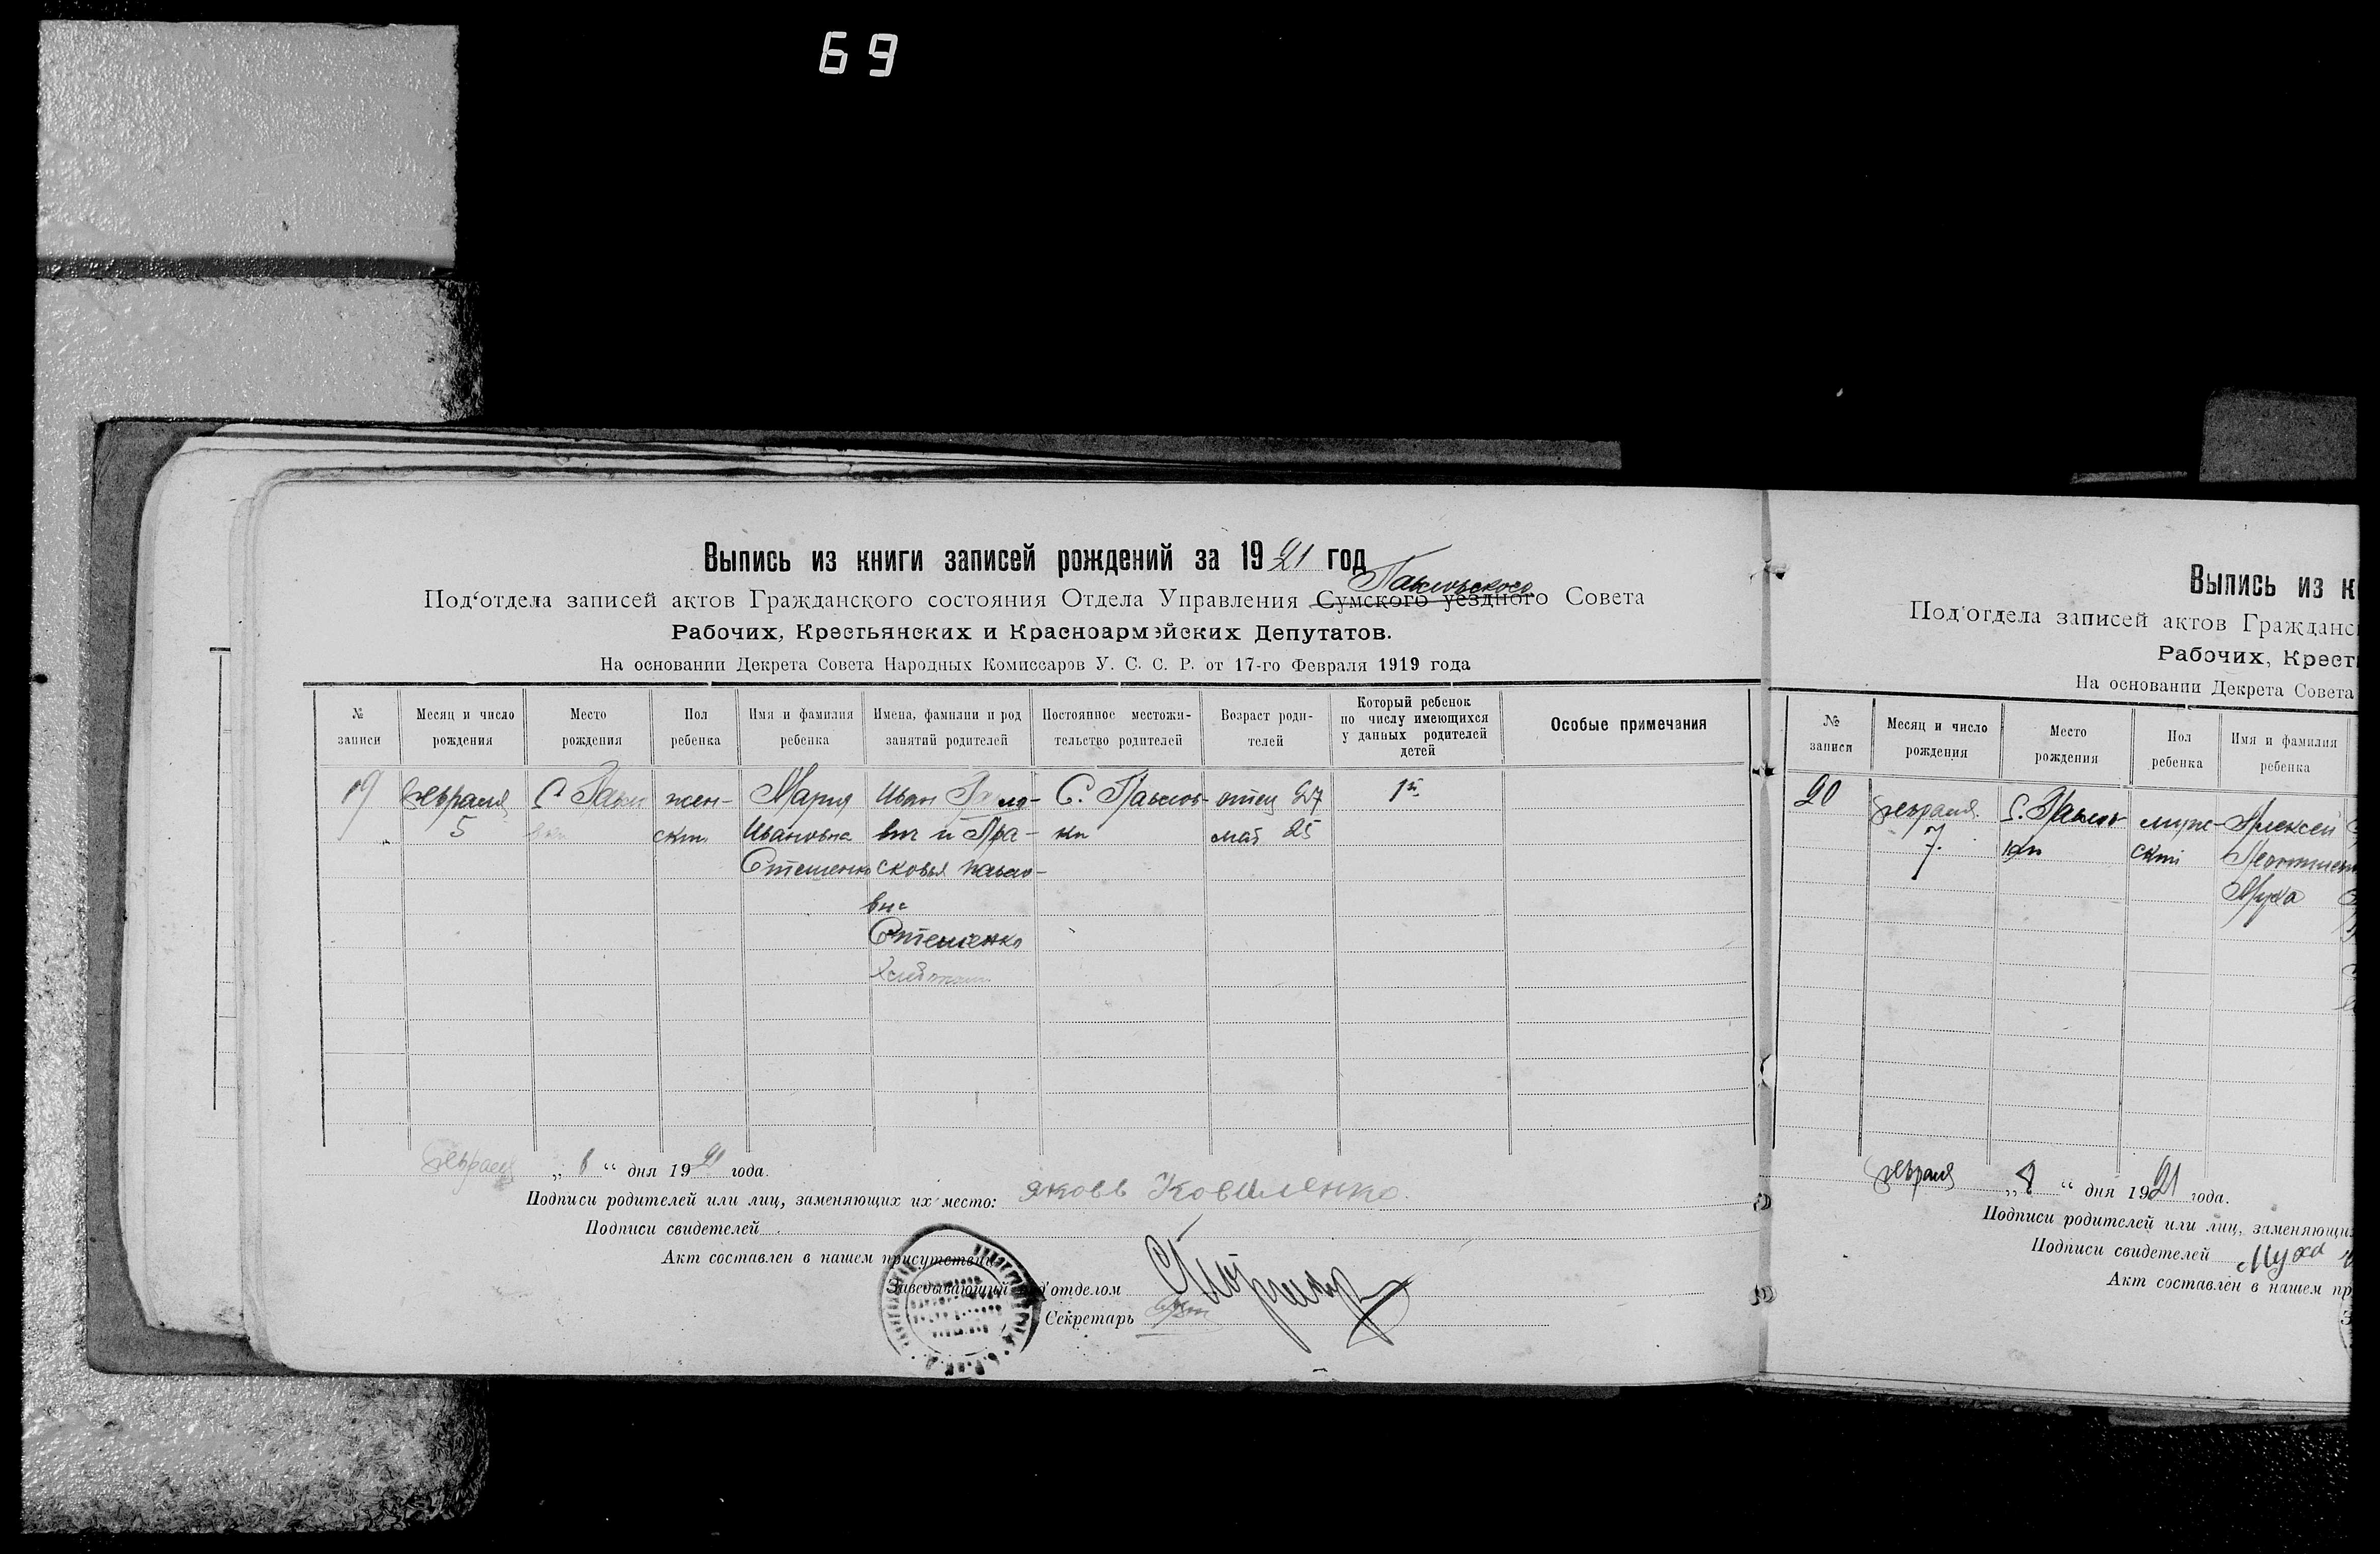 69
Выпись из книги записей рождений за 1921 год
Павловского
Под‘отдела записей актов Гражданского состояния Отдела Управления Сумского уездного Совета
Рабочих, Крестьянских и Красноармейских Депутатов.
На основании Декрета Совета Народных Комиссаров У. С. С. Р. от 17-го Февраля 1919 года
№ записи
Месяц и число рождения
Место рождения
Пол ребенка
Имя и фамилия ребенка
Имена, фамилии и род занятий родителей
Постоянное местожи-
тельство родителей
Возраст роди-
телей
Который ребенок
по числу имеющихся
у данных родителей
детей
Особые примечания
19
февраля
5
С. Павл
жен-
ский
Мария
Ивановна
Стешенко
Иван Павло-
вич и Пра-
сковья Павло-
вна
Стешенко
С. Павлов-
ки
отец 27
мат 25
1й
Февраля „ 6 “ дня 1921 года.
Подписи родителей или лиц, заменяющих их место: Яковъ Коваленко.
Подписи свидетелей
Акт составлен в нашем присутствии
Заведывающий под‘отделом
Секретарь
Выпись из к
Под‘отдела записей актов Гражданс
Рабочих, Крест
На основании Декрета Совета
№ записи
Месяц и число рождения
Место рождения
Пол ребенка
Имя и фамилия ребенка
20
февраля
7.
С. Павлов-
ки
муж-
ский
Алексей
Муха
февраля „ 8 “ дня 1921 года.
Подписи родителей или лиц, заменяющи
Подписи свидетелей Муха
Акт составлен в нашем пр